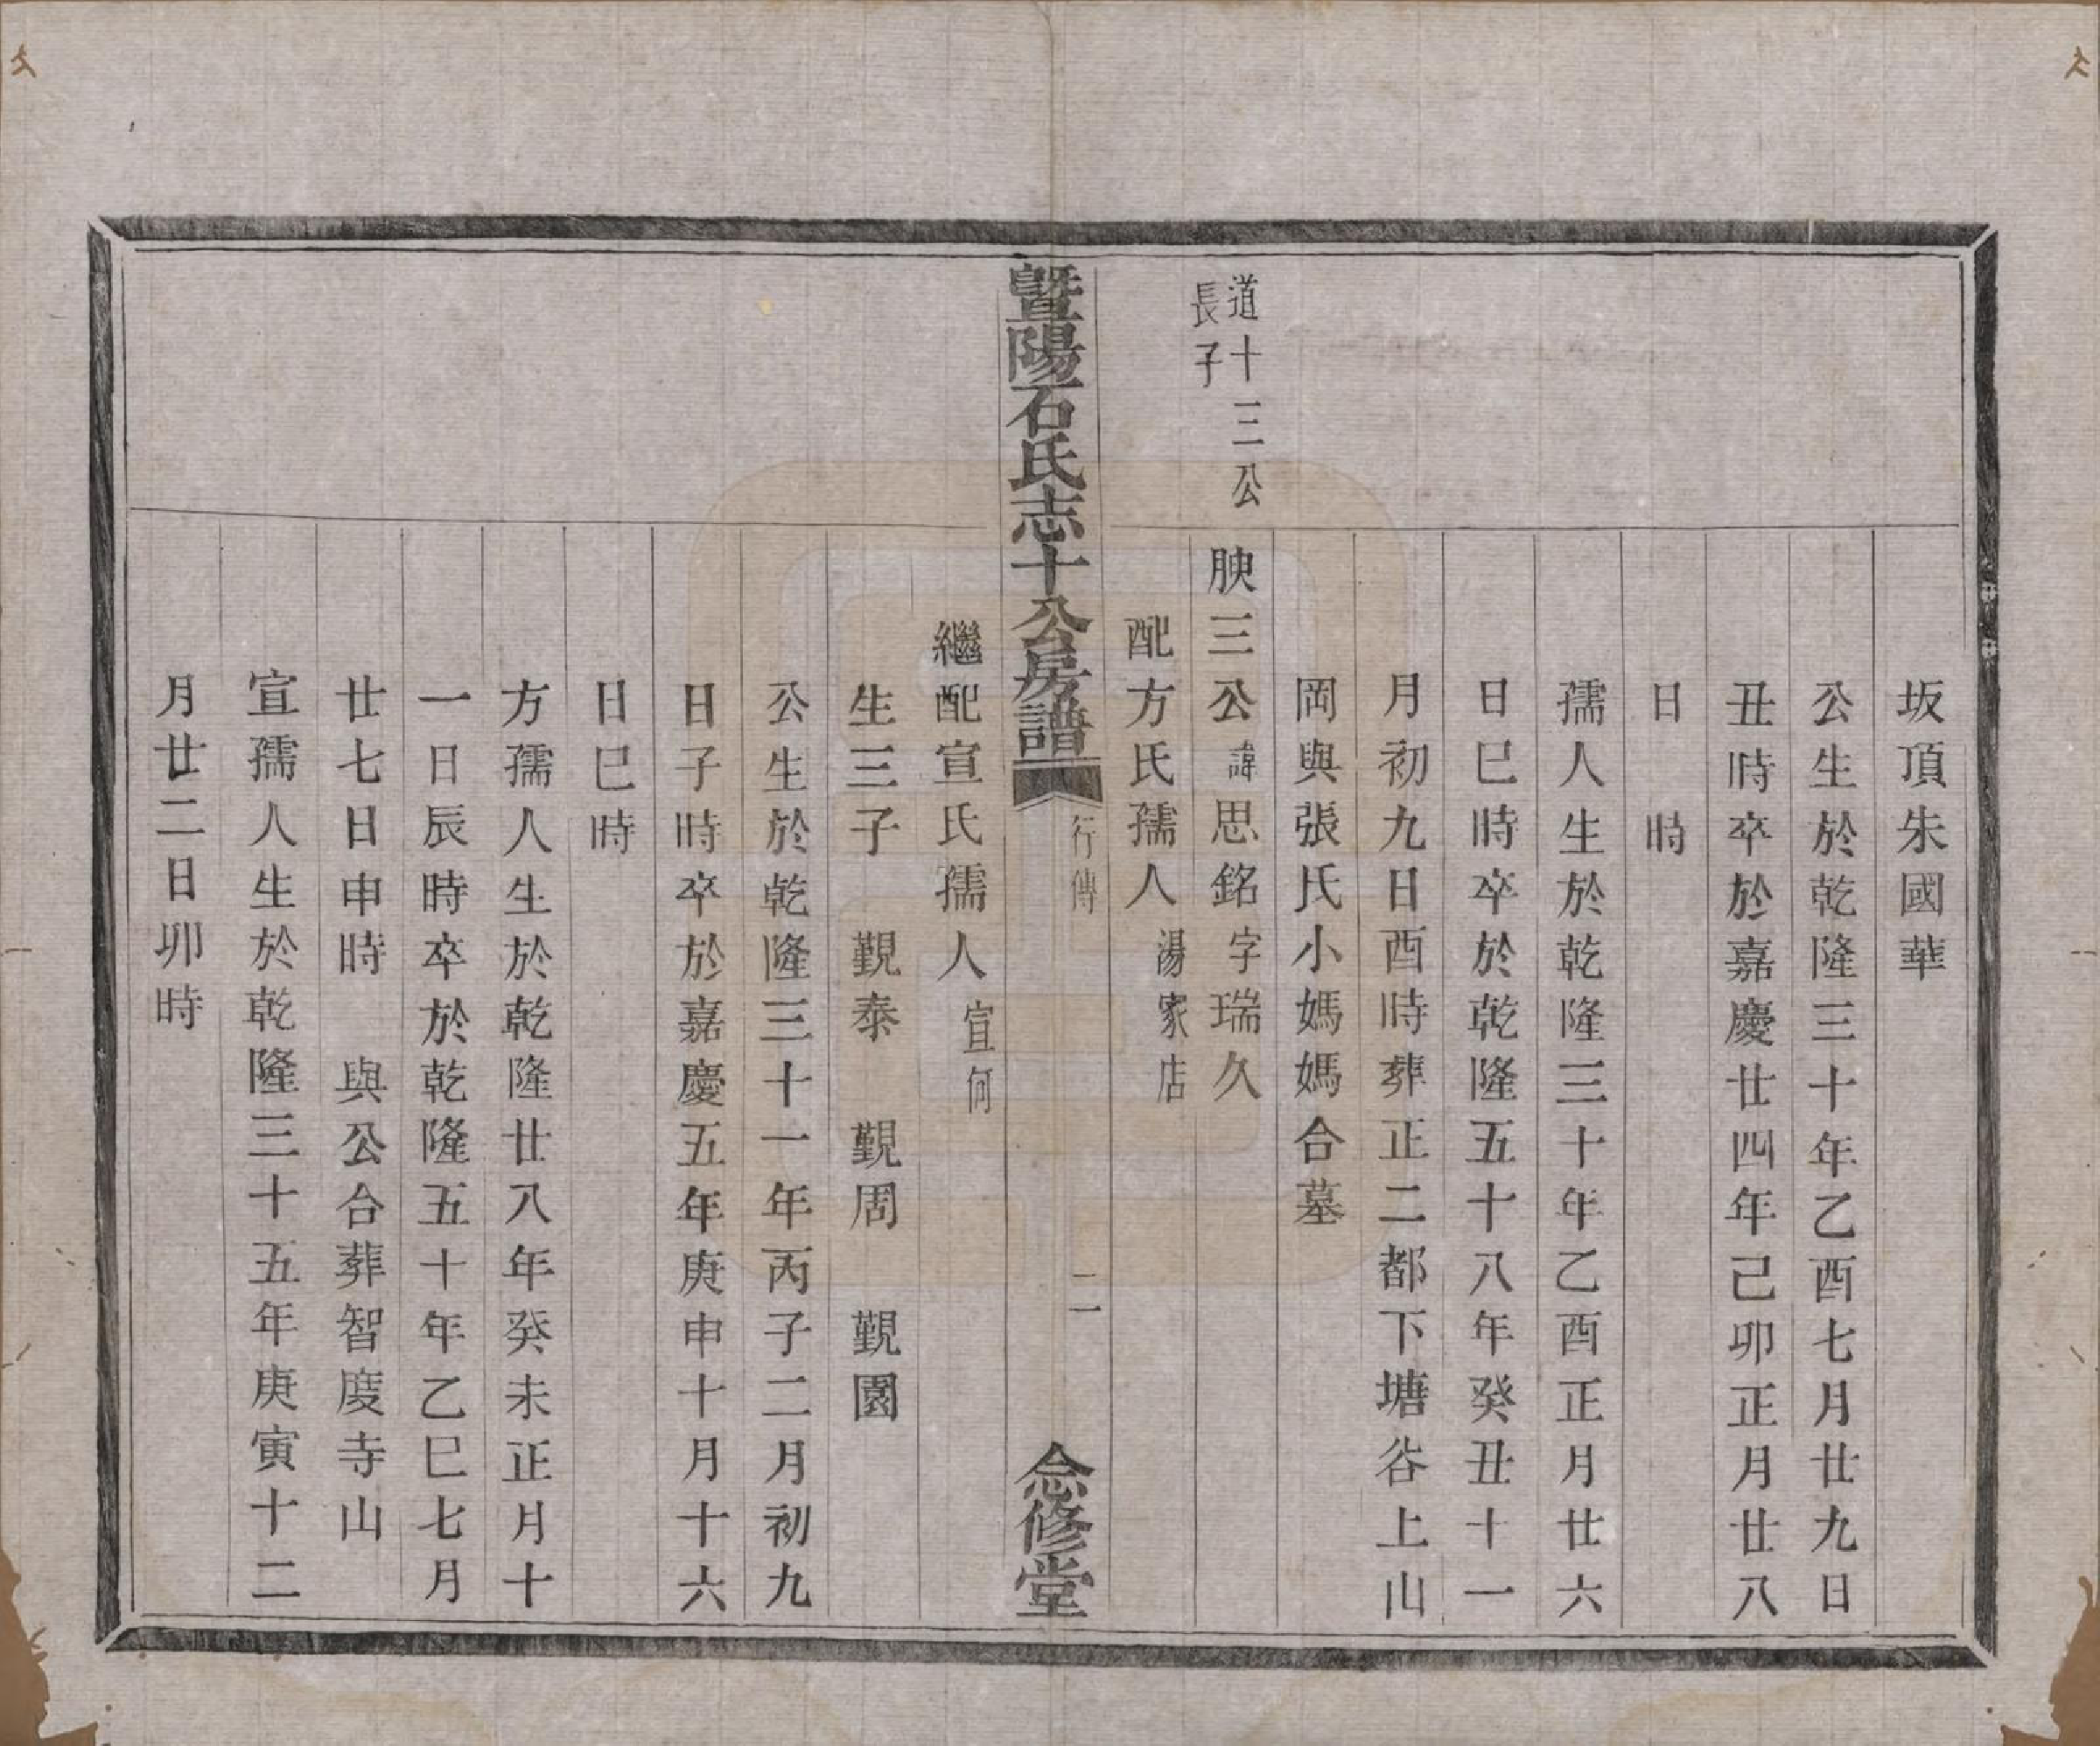 坂頂朱國華
公生於乾隆三十年乙酉七月廿九日
丑時卒於嘉慶廿四年己卯正月廿八
日　時
孺人生於乾隆三十年乙酉正月廿六
日巳時卒於乾隆五十八年癸丑十一
月初九日酉時葬正二都下塘谷上山
岡與張氏小媽媽合墓
道十三公
長子
腴三公諱思銘字瑞久
配方氏孺人湯家店
暨陽石氏志十公房譜
行傳
二
念修堂
繼配宣氏孺人宣何
生三子　觀泰　觀周　觀園
公生於乾隆三十一年丙子二月初九
日子時卒於嘉慶五年庚申十月十六
日巳時
方孺人生於乾隆廿八年癸未正月十
一日辰時卒於乾隆五十年乙巳七月
廿七日申時　與公合葬智度寺山
宣孺人生於乾隆三十五年庚寅十二
月廿二日卯時